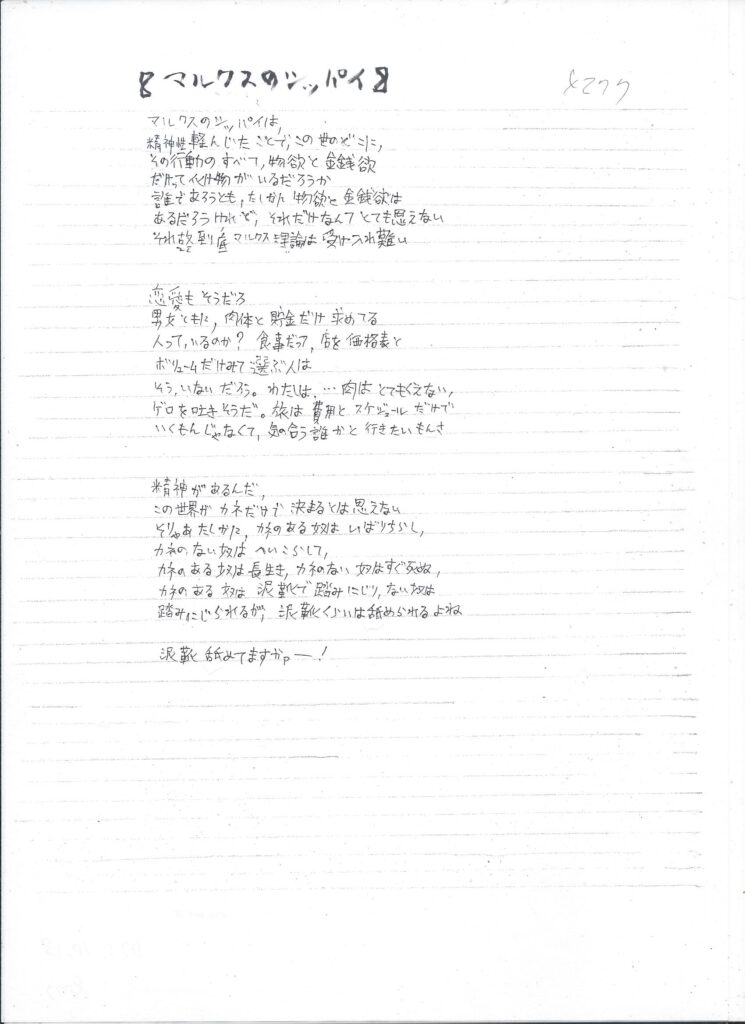 【マルクスのシッパイ】
マルクスのシッパイは、
精神性軽んじたことで、この世のどこに、
その行動のすべて、物欲と金銭欲
だけって化け物がいるだろうか
誰であろうとも、たしかに物欲と金銭欲は
あるだろうけれど、それだけなんてとても思えない
それ故到底マルクス理論は受け入れ難い
恋愛もそうだろ
男女ともに、肉体と貯金だけ求めてる
人って、いるのか？食事だって、店を価格表と
ボリュームだけみて選ぶ人は
そう、いないだろう。わたしは、…肉はとてもくえない、
ゲロを吐きそうだ。旅は費用とスケジュールだけで
いくもんじゃなくて、気の合う誰かと行きたいもんさ
精神があるんだ、
この世界がカネだけで決まるとは思えない
そりゃあたしかに、カネのある奴はいばりちらし、
カネのない奴はへいこらして、
カネのある奴は長生き、カネのない奴はすぐ死ぬ、
カネのある奴は泥靴で踏みにじり、ない奴は
踏みにじられるが、泥靴くらいは舐められるよね
泥靴舐めてますかァー！